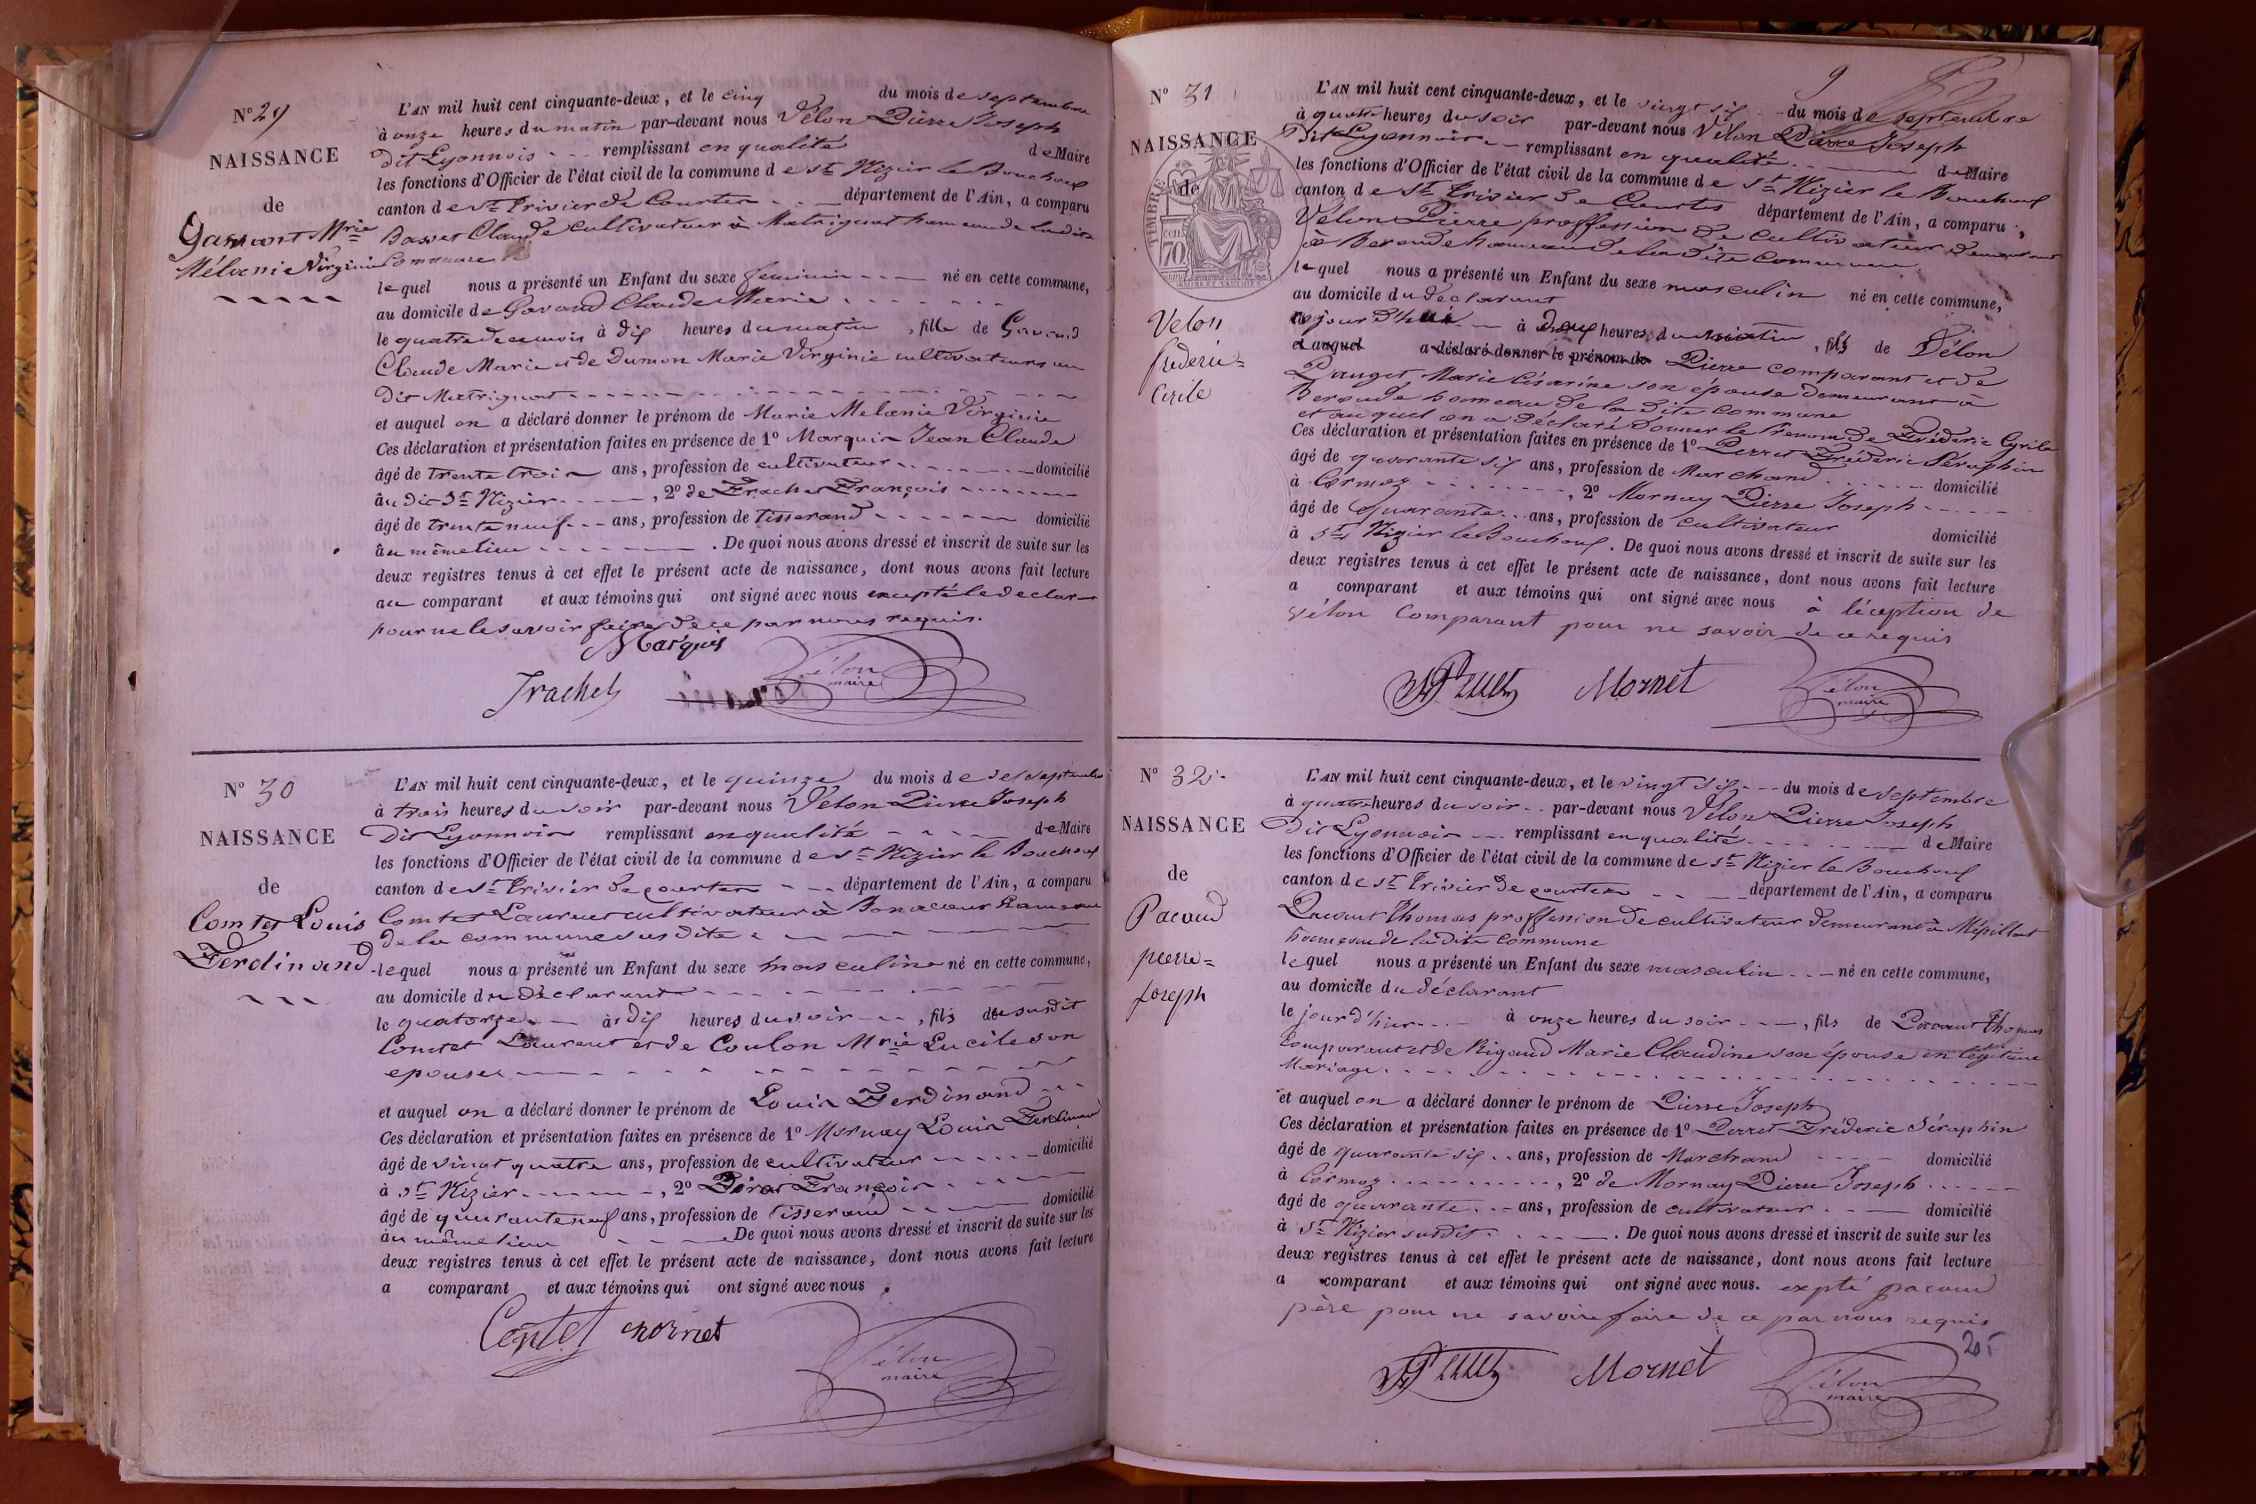 N° 29
NAISSANCE
de
Gavant Mrie
Mélanie Virginie
L'AN mil huit cent cinquante-deux, et le cinq du mois de septembre
à onze heures du matin par-devant nous Vélon Pierre Joseph
Dit Lyonnois remplissant en qualité de Maire
les fonctions d'Officier de l'état civil de la commune de St Nizier le Bouchoux
canton de St Trivier de Courtes département de l'Ain, a comparu
Basset Claude cultivateur à Matrignat hameau de ladite
Commune
lequel nous a présenté un Enfant du sexe feminin né en cette commune,
au domicile de Gavand Claude Marie
le quatre de ce mois à dix heures du matin, fille de Gavand
Claude Marie et de Dumon Marie Virginie cultivateurs au
Dit Matrignat
et auquel on a déclaré donner le prénom de Marie Melanie Virginie
Ces déclaration et présentation faites en présence de 1° Marquis Jean Claude
âgé de trente trois ans, profession de cultivateur domicilié
au dit St Nizier, 2° de Trachet François
âgé de trente neuf ans, profession de tisserand domicilié
au même lieu. De quoi nous avons dressé et inscrit de suite sur les
deux registres tenus à cet effet le présent acte de naissance, dont nous avons fait lecture
au comparant et aux témoins qui ont signé avec nous excepté le declar
pour ne le savoir faire de ce par nous requis.
Marquis
Trachet Vélon maire
N° 30
NAISSANCE
de
Comtet Louis
Ferdinand
L'AN mil huit cent cinquante-deux, et le quinze du mois de septembre
à trois heures du soir par-devant nous Vélon Pierre Joseph
Dit Lyonnois remplissant en qualité de Maire
les fonctions d'Officier de l'état civil de la commune de St Nizier le Bouchoux
canton de St Trivier de courtes département de l'Ain, a comparu
Comtet Laurent cultivateur à Bonacour hameau
de la commune sus dite
lequel nous a présenté un Enfant du sexe masculine né en cette commune,
au domicile du Déclarant
le quatorze à dix heures du soir, fils du susdit
Comtet Laurent et de Coulon Mrie Lucile son
epouse
et auquel on a déclaré donner le prénom de Louis Ferdinand
Ces déclaration et présentation faites en présence de 1° Mornay Louis Ferdinand
âgé de vingt quatre ans, profession de cultivateur domicilié
à St Nizier, 2° Pirat François
âgé de quarante neuf ans, profession de tisserand domicilié
au même lieu De quoi nous avons dressé et inscrit de suite sur les
deux registres tenus à cet effet le présent acte de naissance, dont nous avons fait lecture
a comparant et aux témoins qui ont signé avec nous.
Contet mornet
Vélon maire
9
N° 31
NAISSANCE
de
TIMBRE
70
Velon
frederic=
Cirile
L'AN mil huit cent cinquante-deux, et le vingt six du mois de septembre
à quatre heures du soir par-devant nous Vélon Pierre Joseph
Dit Lyonnois remplissant en qualité de Maire
les fonctions d'Officier de l'état civil de la commune de St Nizier le Bouchoux
canton de St Trivier de Courtes département de l'Ain, a comparu,
Vélon Pierre proffession de cultivateur demeurant
à Beronde hameau de la dite Commune
lequel nous a présenté un Enfant du sexe masculin né en cette commune,
au domicile du declarant
ce jour d'hui à Deux heures du matin, fils de Vélon
et auquel a déclaré donner le prénom de Pierre comparant et de
Pauget Marie Césarine son épouse demeurant à
Beronde hameau de la dite commune
et auquel on a déclaré donner le Prenom de Fréderic Cyrile
Ces déclaration et présentation faites en présence de 1° Perret Fréderic Séraphin
âgé de quarante six ans, profession de Marchand domicilié
à Cormoz, 2° Mornay Pierre Joseph
âgé de Quarante ans, profession de cultivateur domicilié
à St Nizier le Bouchoux. De quoi nous avons dressé et inscrit de suite sur les
deux registres tenus à cet effet le présent acte de naissance, dont nous avons fait lecture
a comparant et aux témoins qui ont signé avec nous à l'éception de
vélon Comparant pour ne savoir de ce requis
Mornet Vélon maire
N° 32
NAISSANCE
de
Pacoud
pierre=
joseph
L'AN mil huit cent cinquante-deux, et le vingt six du mois de septembre
à quatre heures du soir par-devant nous Vélon Pierre Joseph
Dit Lyonnois remplissant en qualité de Maire
les fonctions d'Officier de l'état civil de la commune de St Nizier le Bouchoux
canton de St Trivier de courtes département de l'Ain, a comparu
Pacout Thomas proffession de cultivateur demeurant à Mépillat
hameau de la dite commune
lequel nous a présenté un Enfant du sexe masculin né en cette commune,
au domicile du déclarant
le jour d'hier à onze heures du soir, fils de Pacout Thomas
comparant et de Rigaud Marie Claudine son épouse en légitime
Mariage
et auquel on a déclaré donner le prénom de Pierre Joseph
Ces déclaration et présentation faites en présence de 1° Perret Fréderic Séraphin
âgé de quarante six ans, profession de Marchand domicilié
à Cormoz, 2° de Mornay Pierre Joseph
âgé de quarante ans, profession de cultivateur domicilié
à St Nizier susdit. De quoi nous avons dressé et inscrit de suite sur les
deux registres tenus à cet effet le présent acte de naissance, dont nous avons fait lecture
a comparant et aux témoins qui ont signé avec nous. expté pacoud
père pour ne savoire faire de ce par nous requis
Mornet Vélon maire